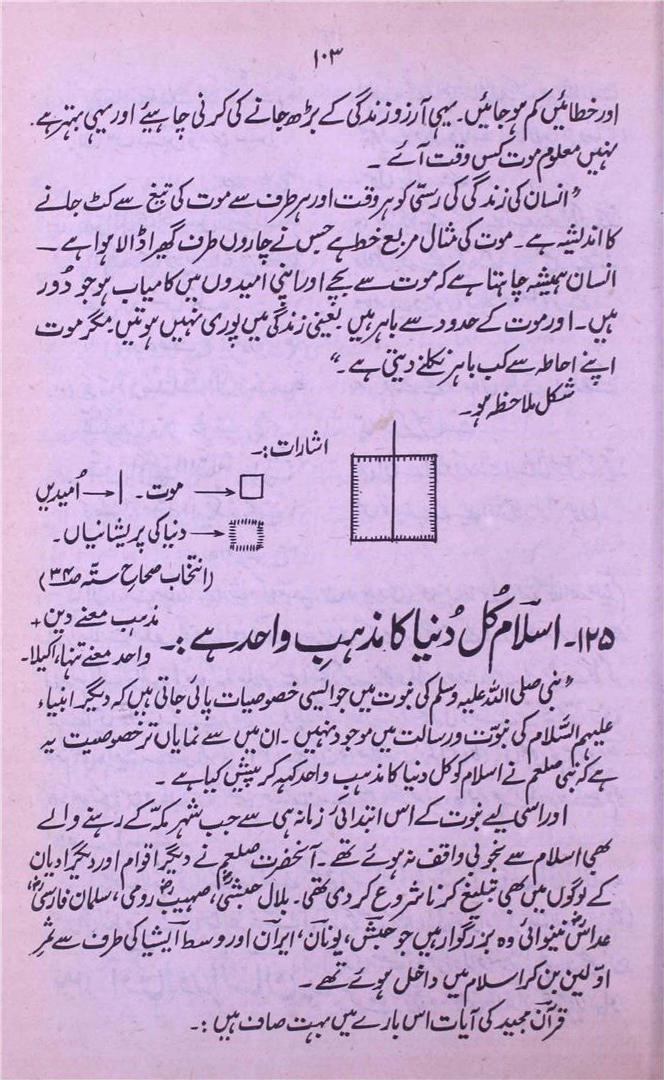 ۱۰۳
اور خطائیں کم ہو جائیں۔ یہی آرزو زندگی کے بڑھ جانے کی کرنی چاہیئے اور یہی بہتر ہے۔
نہیں معلوم موت کس وقت آئے۔
"انسان کی زندگی کی رسّی کو ہر وقت اور ہر طرف سے موت کی تیغ سے کٹ جانے
کا اندیشہ ہے۔ موت کی مثال مربع خط ہے جس نے چاروں طرف گھیرا ڈالا ہوا ہے۔
انسان ہمیشہ چاہتا ہے کہ موت سے بچے اور اپنی امیدوں میں کامیاب ہو جو دُور
ہیں۔ اور موت کے حدود سے باہر ہیں یعنی زندگی میں پوری نہیں ہوتیں مگر موت
اپنے احاطہ سے کب باہر نکلنے دیتی ہے۔"
شکل ملاحظہ ہو۔
اشارات:۔
موت۔ اُمیدیں
دنیا کی پریشانیاں۔
(انتخاب صحاح ستّہ ص۳۴)
مذہب معنے دین +
واحد معنے تنہا، اکیلا۔
۱۲۵۔ اسلام کُل دُنیا کا مذہبِ واحد ہے:۔
"نبی صلی اللہ علیہ وسلم کی نبوت میں جو ایسی خصوصیات پائی جاتی ہیں کہ دیگر انبیاء
علیہم السّلام کی نبوّت و رسالت میں موجود نہیں۔ ان میں سے نمایاں تر خصوصیت یہ
ہے کہ نبی صلعم نے اسلام کو کل دنیا کا مذہب واحد کہہ کر پیش کیا ہے۔
اور اسی لیے نبوت کے اس ابتدائی زمانہ ہی سے جب شہر مکہّ کے رہنے والے
بھی اسلام سے بخوبی واقف نہ ہوئے تھے۔ آنحضرت صلعم نے دیگر اقوام اور دیگر ادیان
کے لوگوں میں بھی تبلیغ کرنا شروع کر دی تھی۔ بلال حبشیؓ، صہیبؓ رومی، سلمان فارسیؓ،
عداسؓ نینوائی وہ بزرگوار ہیں جو حبش، یونان، ایران اور وسط ایشیا کی طرف سے ثمرِ
اوّلین بن کر اسلام میں داخل ہوئے تھے۔
قرآن مجید کی آیات اس بارے میں بہت صاف ہیں:۔